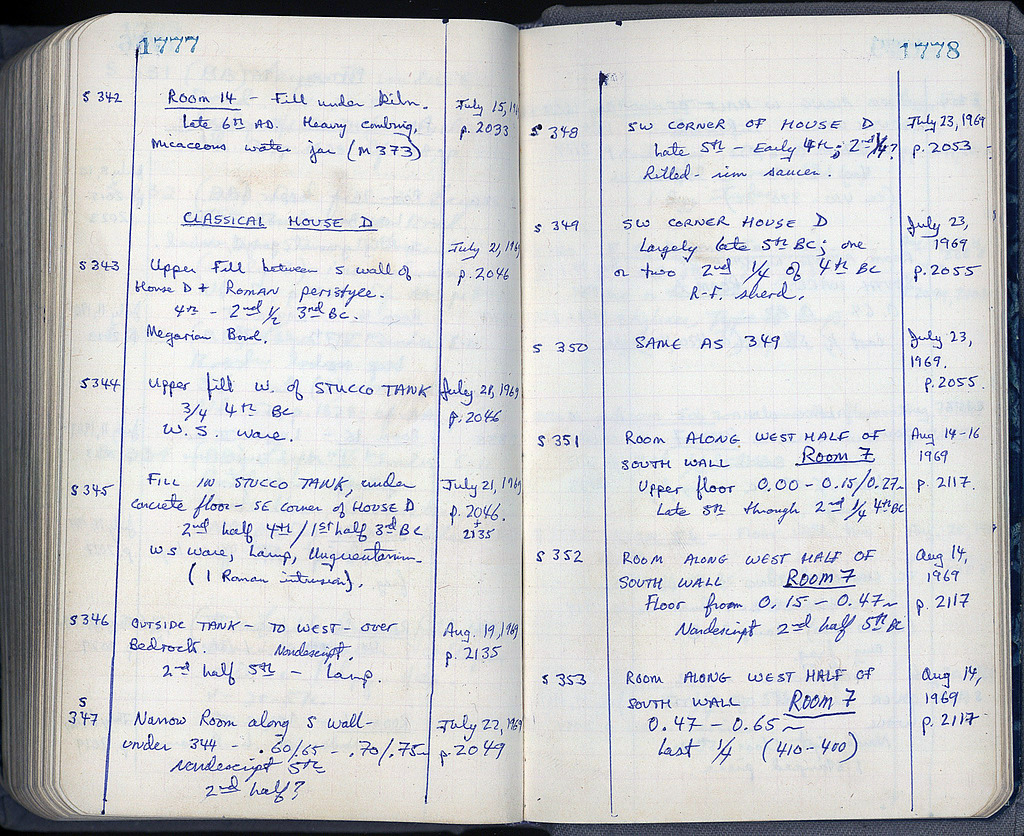 1777
S 342 ROOM 14 - Fill under kiln. July 15, 19
Late 6th AD. Heavy combing, p. 2033
Micaceous water jar (M 373)
CLASSICAL HOUSE D
July 21, 1969
S 343 Upper Fill between S wall of p. 2046
House D + ROMAN peristyle.
4th - 2nd 1/2 3rd BC.
Megarian Bowl.
S 344 Upper fill W. of STUCCO TANK July 21, 1969
3/4 4th BC p. 2046
W.S. Ware.
S 345 FILL IN STUCCO TANK, under July 21, 1969
concrete floor - SE corner of HOUSE D p. 2046.
2nd half 4th / 1st half 3rd BC + 2135
WS Ware, Lamp, Unguentarium
(1 Roman intrusion).
S 346 OUTSIDE TANK - TO WEST - over Aug. 19, 1969
Bedrock. Nondescript. p. 2135
2nd half 5th - Lamp.
S 347 Narrow Room along S wall- July 22, 1969
under 344 - .60/.65 - .70/.75m p. 2049
Nondescript 5th
2nd half?
1778
S 348 SW CORNER OF HOUSE D July 23, 1969
Late 5th - Early 4th; 2nd 1/4? p. 2053
Rilled-rim saucer.
S 349 SW CORNER HOUSE D July 23,
Largely late 5th BC; one 1969
or two 2nd 1/4 of 4th BC p. 2055
R-F. sherd.
S 350 SAME AS 349 July 23,
1969.
p. 2055.
S 351 ROOM ALONG WEST HALF OF Aug 14-16
SOUTH WALL Room 7 1969
Upper floor 0.00 - 0.15/0.27m p. 2117.
Late 5th through 2nd 1/4 4th BC
S 352 ROOM ALONG WEST HALF OF Aug 14,
SOUTH WALL Room 7 1969
Floor from 0.15 - 0.47m p. 2117
Nondescript 2nd half 5th BC
S 353 ROOM ALONG WEST HALF OF Aug 14,
SOUTH WALL Room 7 1969
0.47 - 0.65m p. 2117
Last 1/4 (410-400)